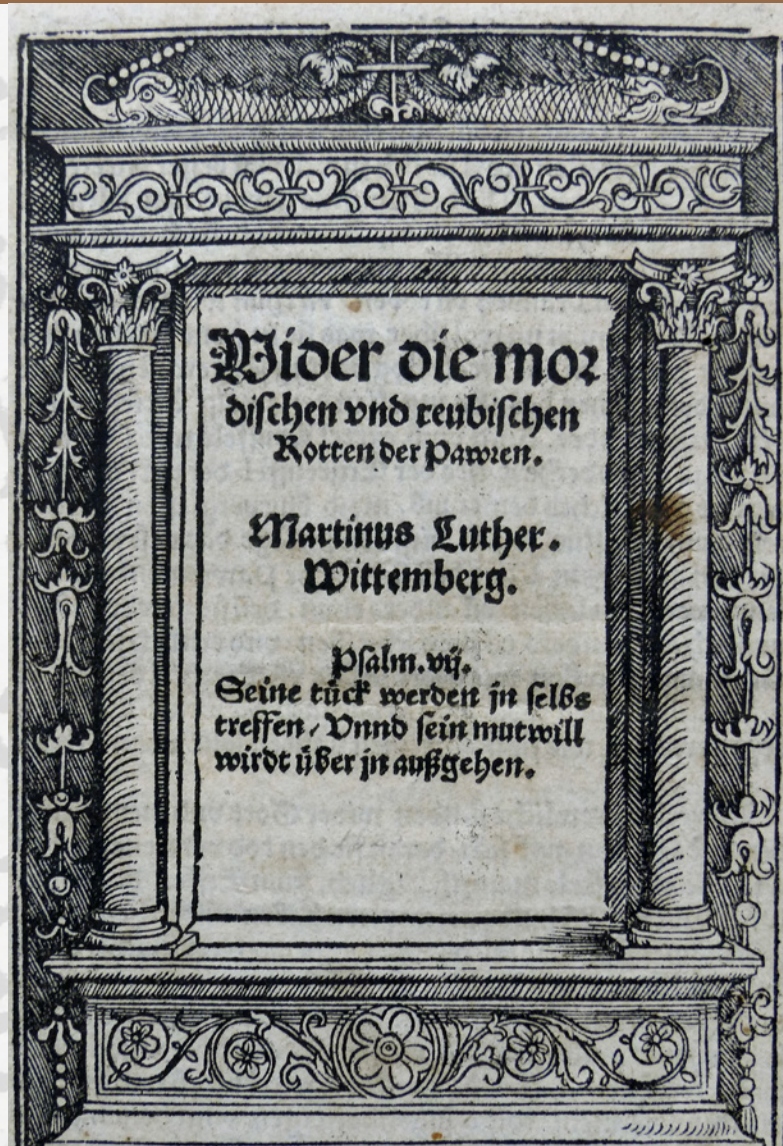 Wider die mor
dischen vnd reubischen
Rotten der Pawren.
Martinus Luther.
Wittemberg.
Psalm. vij.
Seine tück werden jn selbs
treffen / Vnnd sein mutwill
wirdt über jn außgehen.